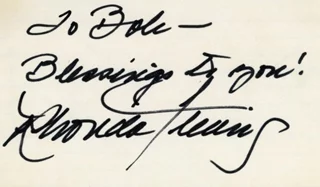 To Bob —
Blessings to you!
Rhonda Fleming